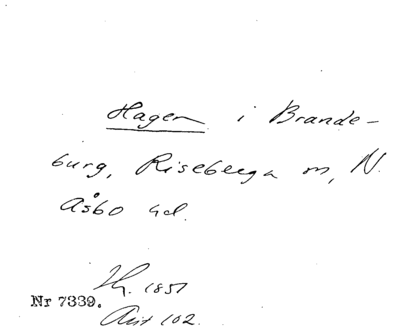 Hagen i Brande-
burg, Riseberga m, N.
Åsbo hd.
1851
Nr 7339.
Akt 102.